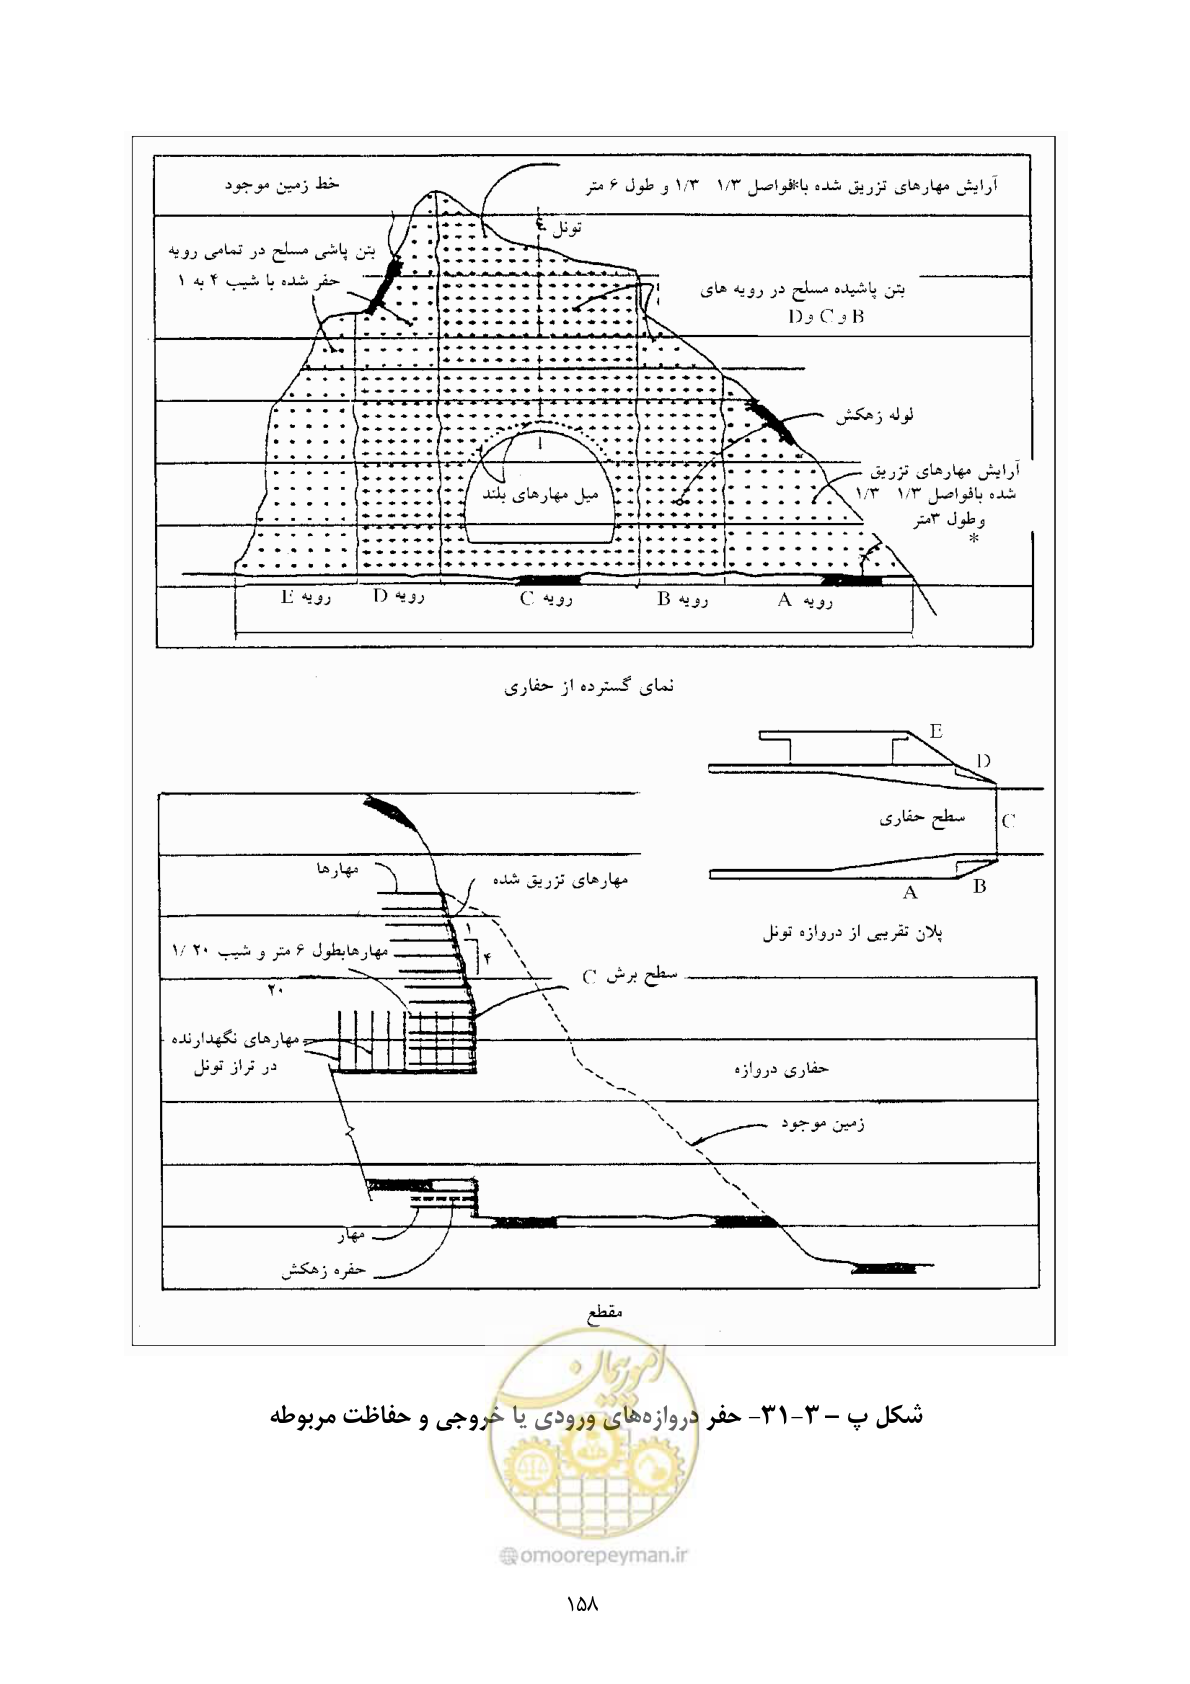 آرایش مهارهای تزریق شده با*فواصل ۱/۳ ۱/۳ و طول ۶ متر
خط زمین موجود
تونل
بتن پاشی مسلح در تمامی رویه
حفر شده با شیب ۴ به ۱
بتن پاشیده مسلح در رویه های
B و C و D
لوله زهکش
آرایش مهارهای تزریق
شده بافواصل ۱/۳ ۱/۳
وطول ۳متر
*
میل مهارهای بلند
رویه A
رویه B
رویه C
رویه D
رویه E
نمای گسترده از حفاری
E
D
سطح حفاری
C
B
A
پلان تقریبی از دروازه تونل
مهارها
مهارهای تزریق شده
۱
۴
مهارهابطول ۶ متر و شیب ۲۰ /۱
۲۰
سطح برش C
مهارهای نگهدارنده
در تراز تونل
حفاری دروازه
زمین موجود
مهار
حفره زهکش
مقطع
امور پیمان
شکل پ – ۳-۳۱- حفر دروازه‌های ورودی یا خروجی و حفاظت مربوطه
@omoorepeyman.ir
۱۵۸